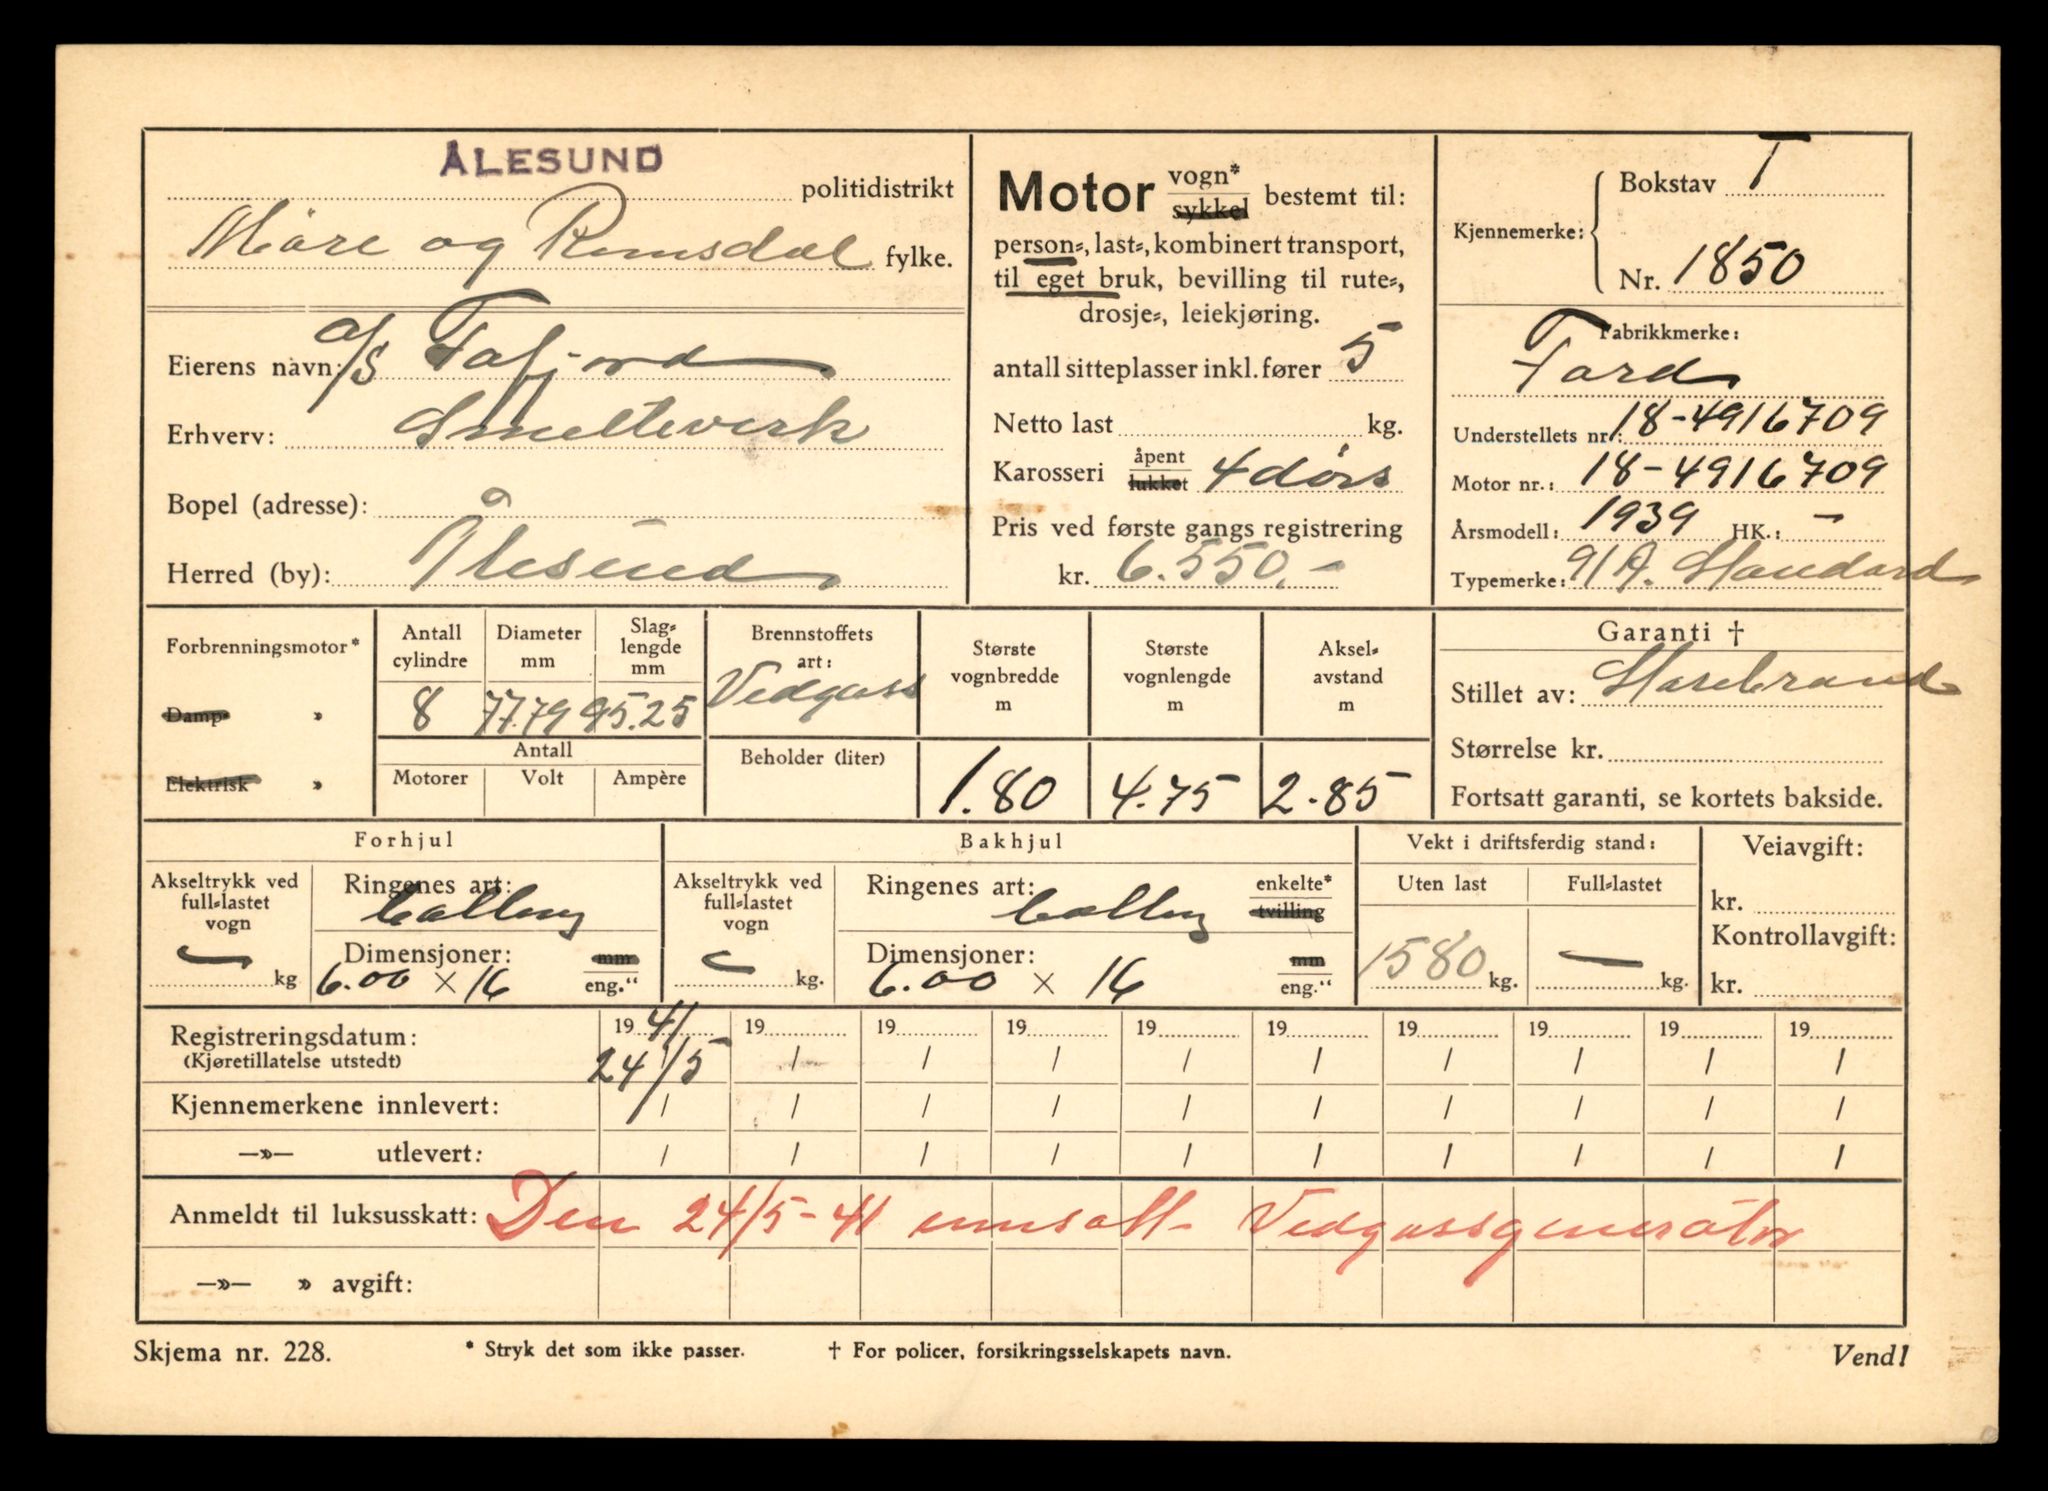 ÅLESUND politidistrikt
Möre og Romsdal fylke.
Eierens navn: A/S Tafjord
Erhverv: Smelteverk
Bopel (adresse):
Herred (by): Ålesund
Motor vogn* sykkel bestemt til:
person-, last-, kombinert transport,
til eget bruk, bevilling til rute-,
drosje-, leiekjøring.
antall sitteplasser inkl. fører 5
Netto last kg.
Karosseri åpent lukket 4 dørs
Pris ved første gangs registrering
kr. 6.550,-
Kjennemerke: Bokstav T
Nr. 1850
Fabrikkmerke:
Ford
Understellets nr.: 18-4916709
Motor nr.: 18-4916709
Årsmodell: 1939 HK.: -
Typemerke: 91A. Standard
Forbrenningsmotor*
Damp »
Elektrisk »
Antall cylindre 8
Diameter mm 77.79
Slaglengde mm 95.25
Antall
Motorer Volt Ampère
Brennstoffets art: Vedgass
Beholder (liter)
Største vognbredde m 1.80
Største vognlengde m 4.75
Akselavstand m 2.85
Garanti †
Stillet av: Storebrand
Størrelse kr.
Fortsatt garanti, se kortets bakside.
Forhjul
Akseltrykk ved full-lastet vogn - kg
Ringenes art: ballong
Dimensjoner: 6.00 × 16 mm eng."
Bakhjul
Akseltrykk ved full-lastet vogn - kg.
Ringenes art: ballong enkelte* tvilling
Dimensjoner: 6.00 × 16 mm eng."
Vekt i driftsferdig stand:
Uten last 1580 kg.
Full-lastet - kg.
Veiavgift:
kr.
Kontrollavgift:
kr.
Registreringsdatum: 1941 19 19 19 19 19 19 19 19 19
(Kjøretillatelse utstedt) 24/5 / / / / / / / / /
Kjennemerkene innlevert: / / / / / / / / / /
—»— utlevert: / / / / / / / / / /
Anmeldt til luksusskatt: Den 24/5-41 innsatt Vedgassgenerator
—»— » avgift:
Skjema nr. 228. * Stryk det som ikke passer. † For policer, forsikringsselskapets navn. Vend!